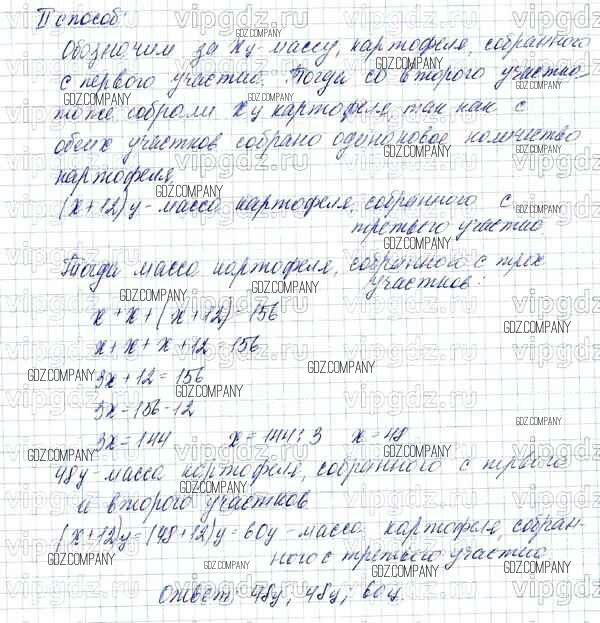 II способ:
Обозначим за х ц - массу, картофеля, собранного
с первого участка. Тогда со второго участка
тоже собрали х ц картофеля, так как с
обеих участков собрано одинаковое количество
картофеля.
(х+12) ц - масса картофеля, собранного с
третьего участка
Тогда масса картофеля, собранного с трех
участков:
х + х + (х+12) = 156
х + х + х + 12 = 156
3х + 12 = 156
3х = 156 - 12
3х = 144 х = 144 : 3 х = 48
48 ц - масса картофеля, собранного с первого
и второго участков
(х+12) ц = (48+12) ц = 60 ц - масса картофеля, собран-
ного с третьего участка
Ответ: 48 ц, 48 ц; 60 ц.
vipgdz.ru
GDZ.COMPANY